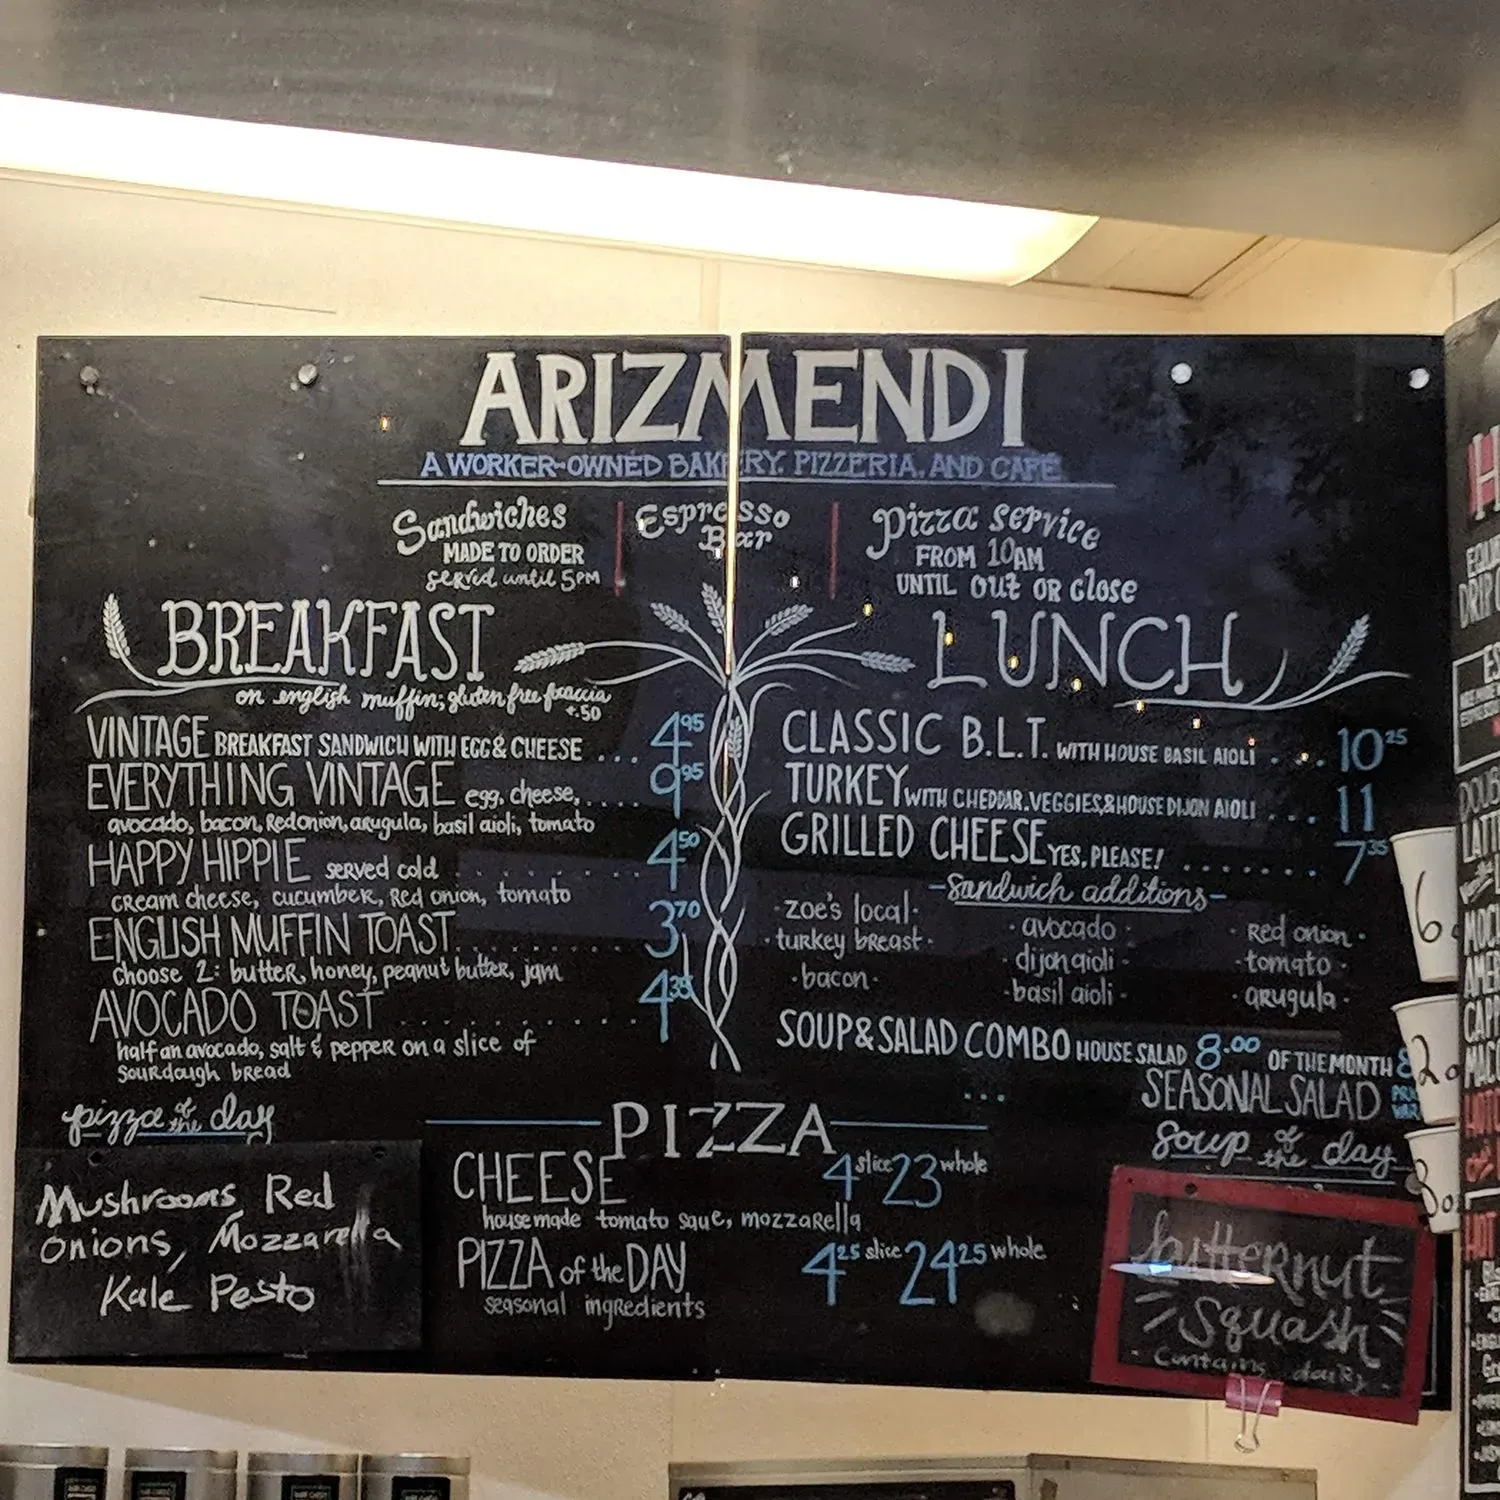 ARIZMENDI
A WORKER-OWNED BAKERY, PIZZERIA, AND CAFE
Sandwiches
MADE TO ORDER
served until 5PM
Espresso
Bar
Pizza service
FROM 10AM
UNTIL OUT OR Close
BREAKFAST
on english muffin; gluten free focaccia
+.50
VINTAGE BREAKFAST SANDWICH WITH EGG & CHEESE ... 4.95
EVERYTHING VINTAGE egg, cheese, .... 9.95
avocado, bacon, Red onion, arugula, basil aioli, tomato
HAPPY HIPPIE served cold ........ 4.50
cream cheese, cucumber, Red onion, tomato
ENGLISH MUFFIN TOAST ........ 3.70
choose 2: butter, honey, peanut butter, jam
AVOCADO TOAST ........ 4.35
half an avocado, salt & pepper on a slice of
sourdough bread
LUNCH
CLASSIC B.L.T. WITH HOUSE BASIL AIOLI .... 10.25
TURKEY WITH CHEDDAR, VEGGIES, & HOUSE DIJON AIOLI ... 11
GRILLED CHEESE YES, PLEASE! ....... 7.35
- Sandwich additions -
· zoe's local · · avocado · · Red onion ·
· turkey breast · · dijon aioli · · tomato ·
· bacon · · basil aioli · · arugula ·
SOUP & SALAD COMBO HOUSE SALAD 8.00 OF THE MONTH 8
... SEASONAL SALAD
soup of the day
butternut
squash
· contains dairy ·
pizza of the day
Mushrooms, Red
onions, Mozzarella
Kale Pesto
PIZZA
CHEESE 4 slice 23 whole
housemade tomato saue, mozzarella
PIZZA of the DAY 4.25 slice 24.25 whole
seasonal ingredients